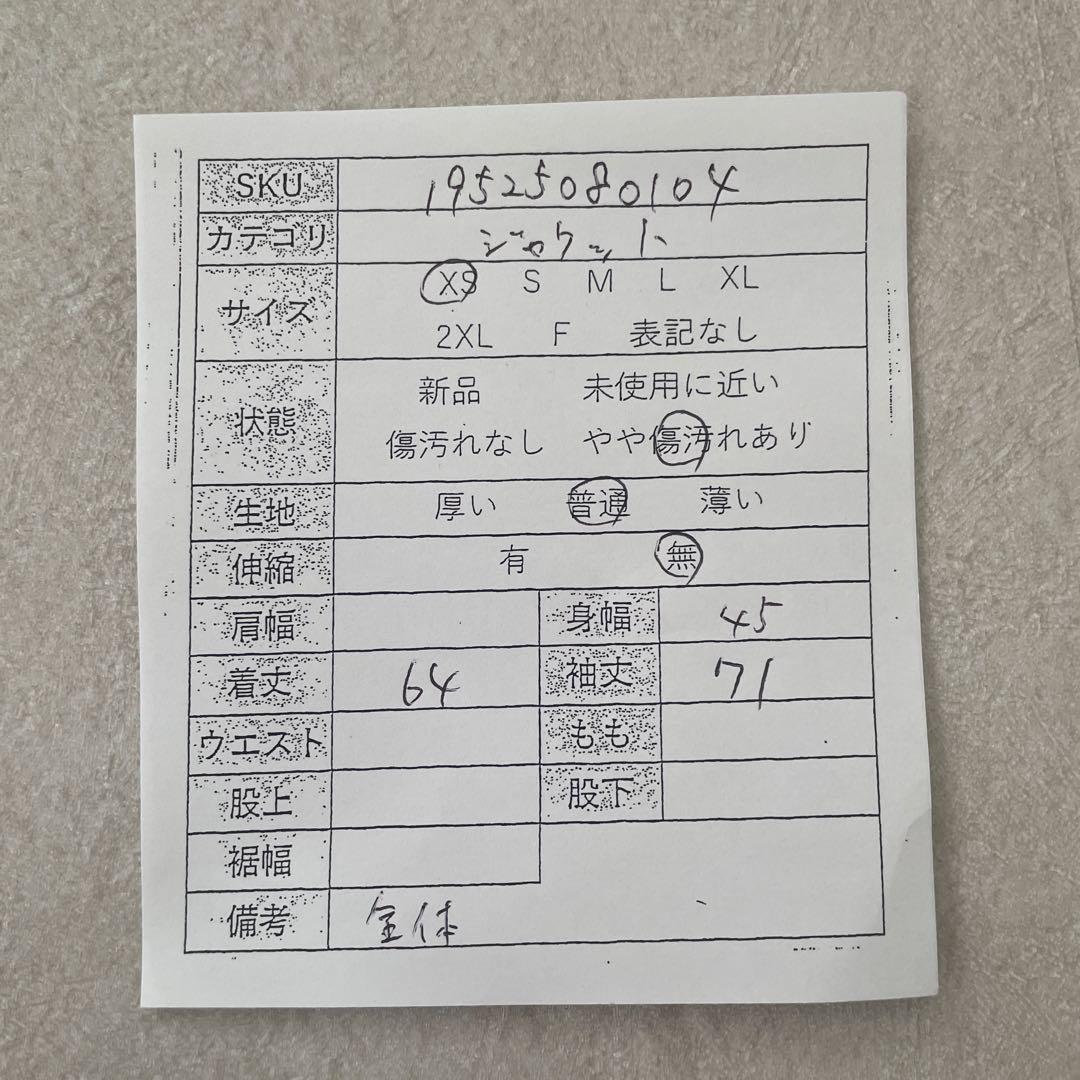 SKU 19525080104
カテゴリ ジャケット
サイズ XS S M L XL
2XL F 表記なし
状態 新品 未使用に近い
傷汚れなし やや傷汚れあり
生地 厚い 普通 薄い
伸縮 有 無
肩幅 身幅 45
着丈 64 袖丈 71
ウエスト もも
股上 股下
裾幅
備考 全体